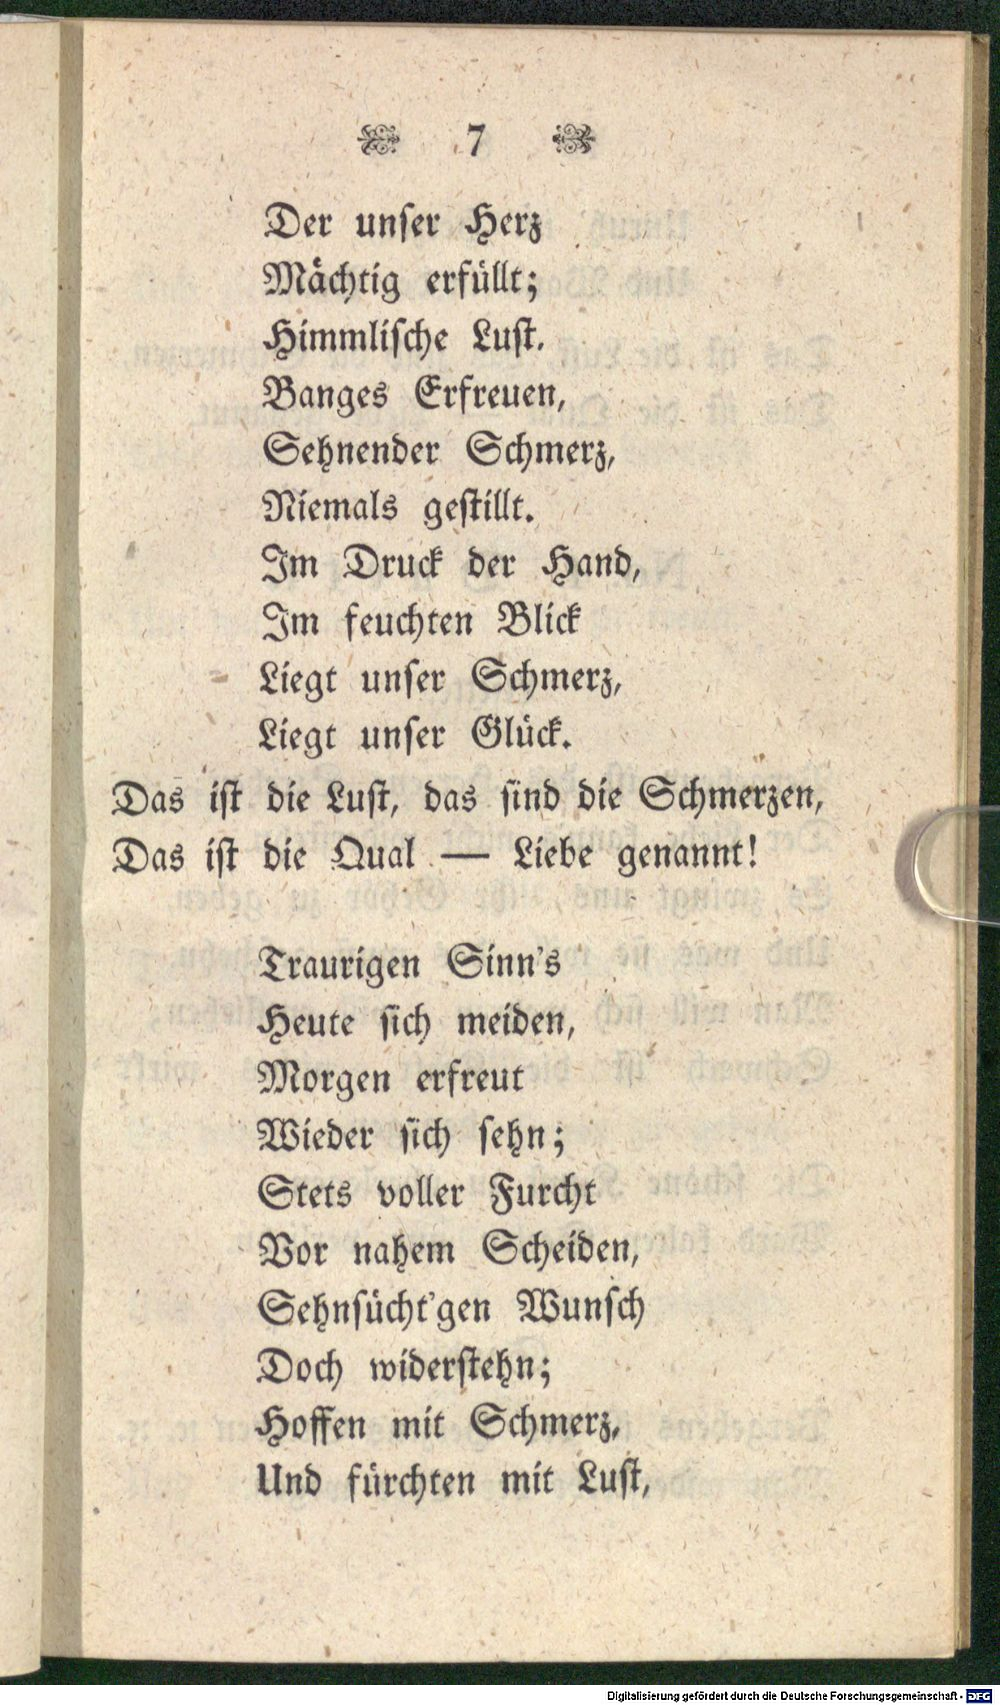 7
Der unser Herz
Mächtig erfüllt;
Himmlische Lust.
Banges Erfreuen,
Sehnender Schmerz,
Niemals gestillt.
Im Druck der Hand,
Im feuchten Blick
Liegt unser Schmerz,
Liegt unser Glück.
Das ist die Lust, das sind die Schmerzen,
Das ist die Qual — Liebe genannt!
Traurigen Sinn's
Heute sich meiden,
Morgen erfreut
Wieder sich sehn;
Stets voller Furcht
Vor nahem Scheiden,
Sehnsücht'gen Wunsch
Doch widerstehn;
Hoffen mit Schmerz,
Und fürchten mit Lust,
Digitalisierung gefördert durch die Deutsche Forschungsgemeinschaft - DFG